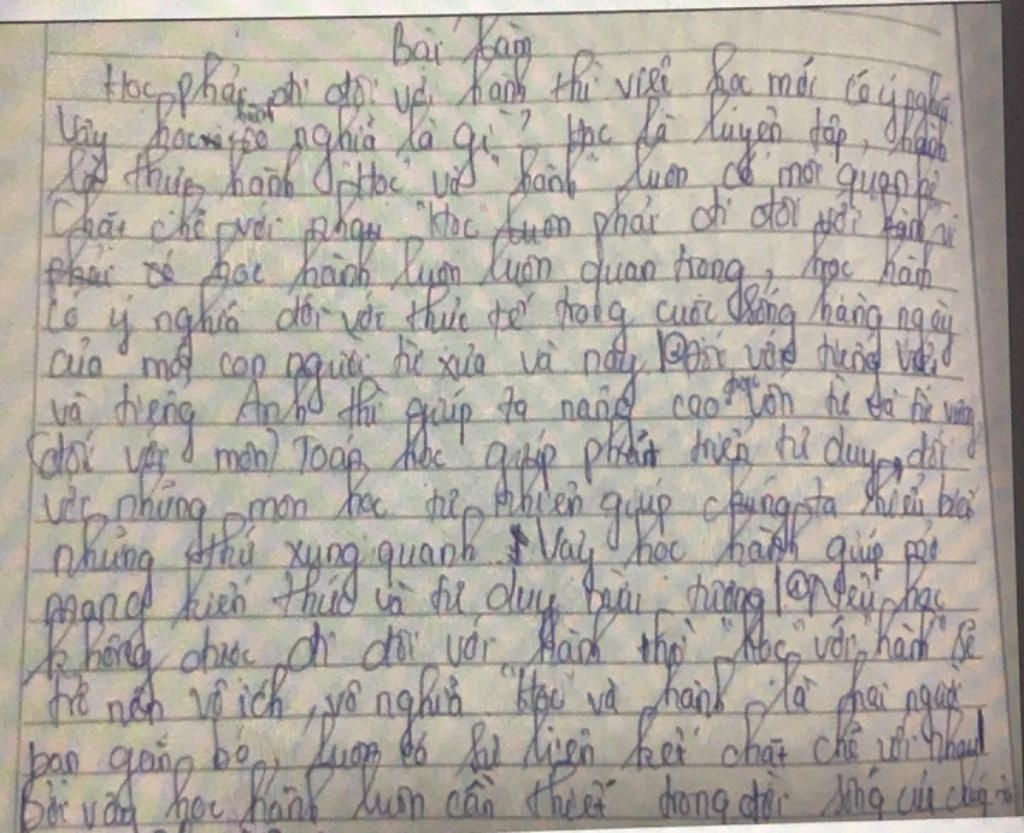 Bài làm
Học phải đi đôi với hành thì việc học mới có ý nghĩa
Vậy học hành có nghĩa là gì? Học là luyện tập, hành
là thực hành "Học" và "hành" luôn có mối quan hệ
Chặt chẽ với nhau. "Học luôn phải đi đôi với hành vì
phải có học hành luôn luôn quan trọng, học hành
Có ý nghĩa đối với thực tế trong cuộc sống hàng ngày
của mọi con người từ xưa và nay. Đối với tiếng việt
và tiếng Anh thì giúp ta nâng cao được vốn từ và từ vựng
(đối với môn) Toán học giúp phát triển tư duy, đối
với những môn học tự nhiên giúp chúng ta hiểu biết
những thứ xung quanh. Vậy học hành giúp mở
mang kiến thức và tư duy trừu tượng. Nếu học
không được đi đôi với hành thì "Học" với "hành" sẽ
trở nên vô ích, vô nghĩa "Học" và hành là hai người
bạn gắn bó, luôn có sự liên kết chặt chẽ với nhau
Bởi vậy học hành luôn cần thiết trong đời sống của chúng ta